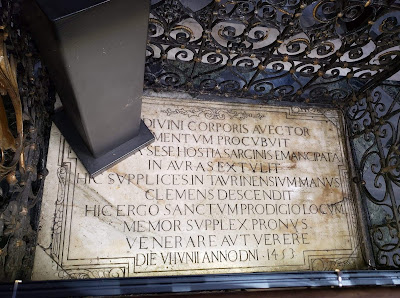 DIVINI CORPORIS AVECTOR
MENTVM PROCVBVIT
SESE HOSTIA SARCINIS EMANCIPATA
IN AVRAS EXTVLIT
HIC SVPPLICES IN TAVRINENSIVM MANVS
CLEMENS DESCENDIT
HIC ERGO SANCTVM PRODIGIO LOCVM
MEMOR SVPPLEX PRONVS
VENERARE AVT VERERE
DIE VI IVNII ANNO DNI · 1453